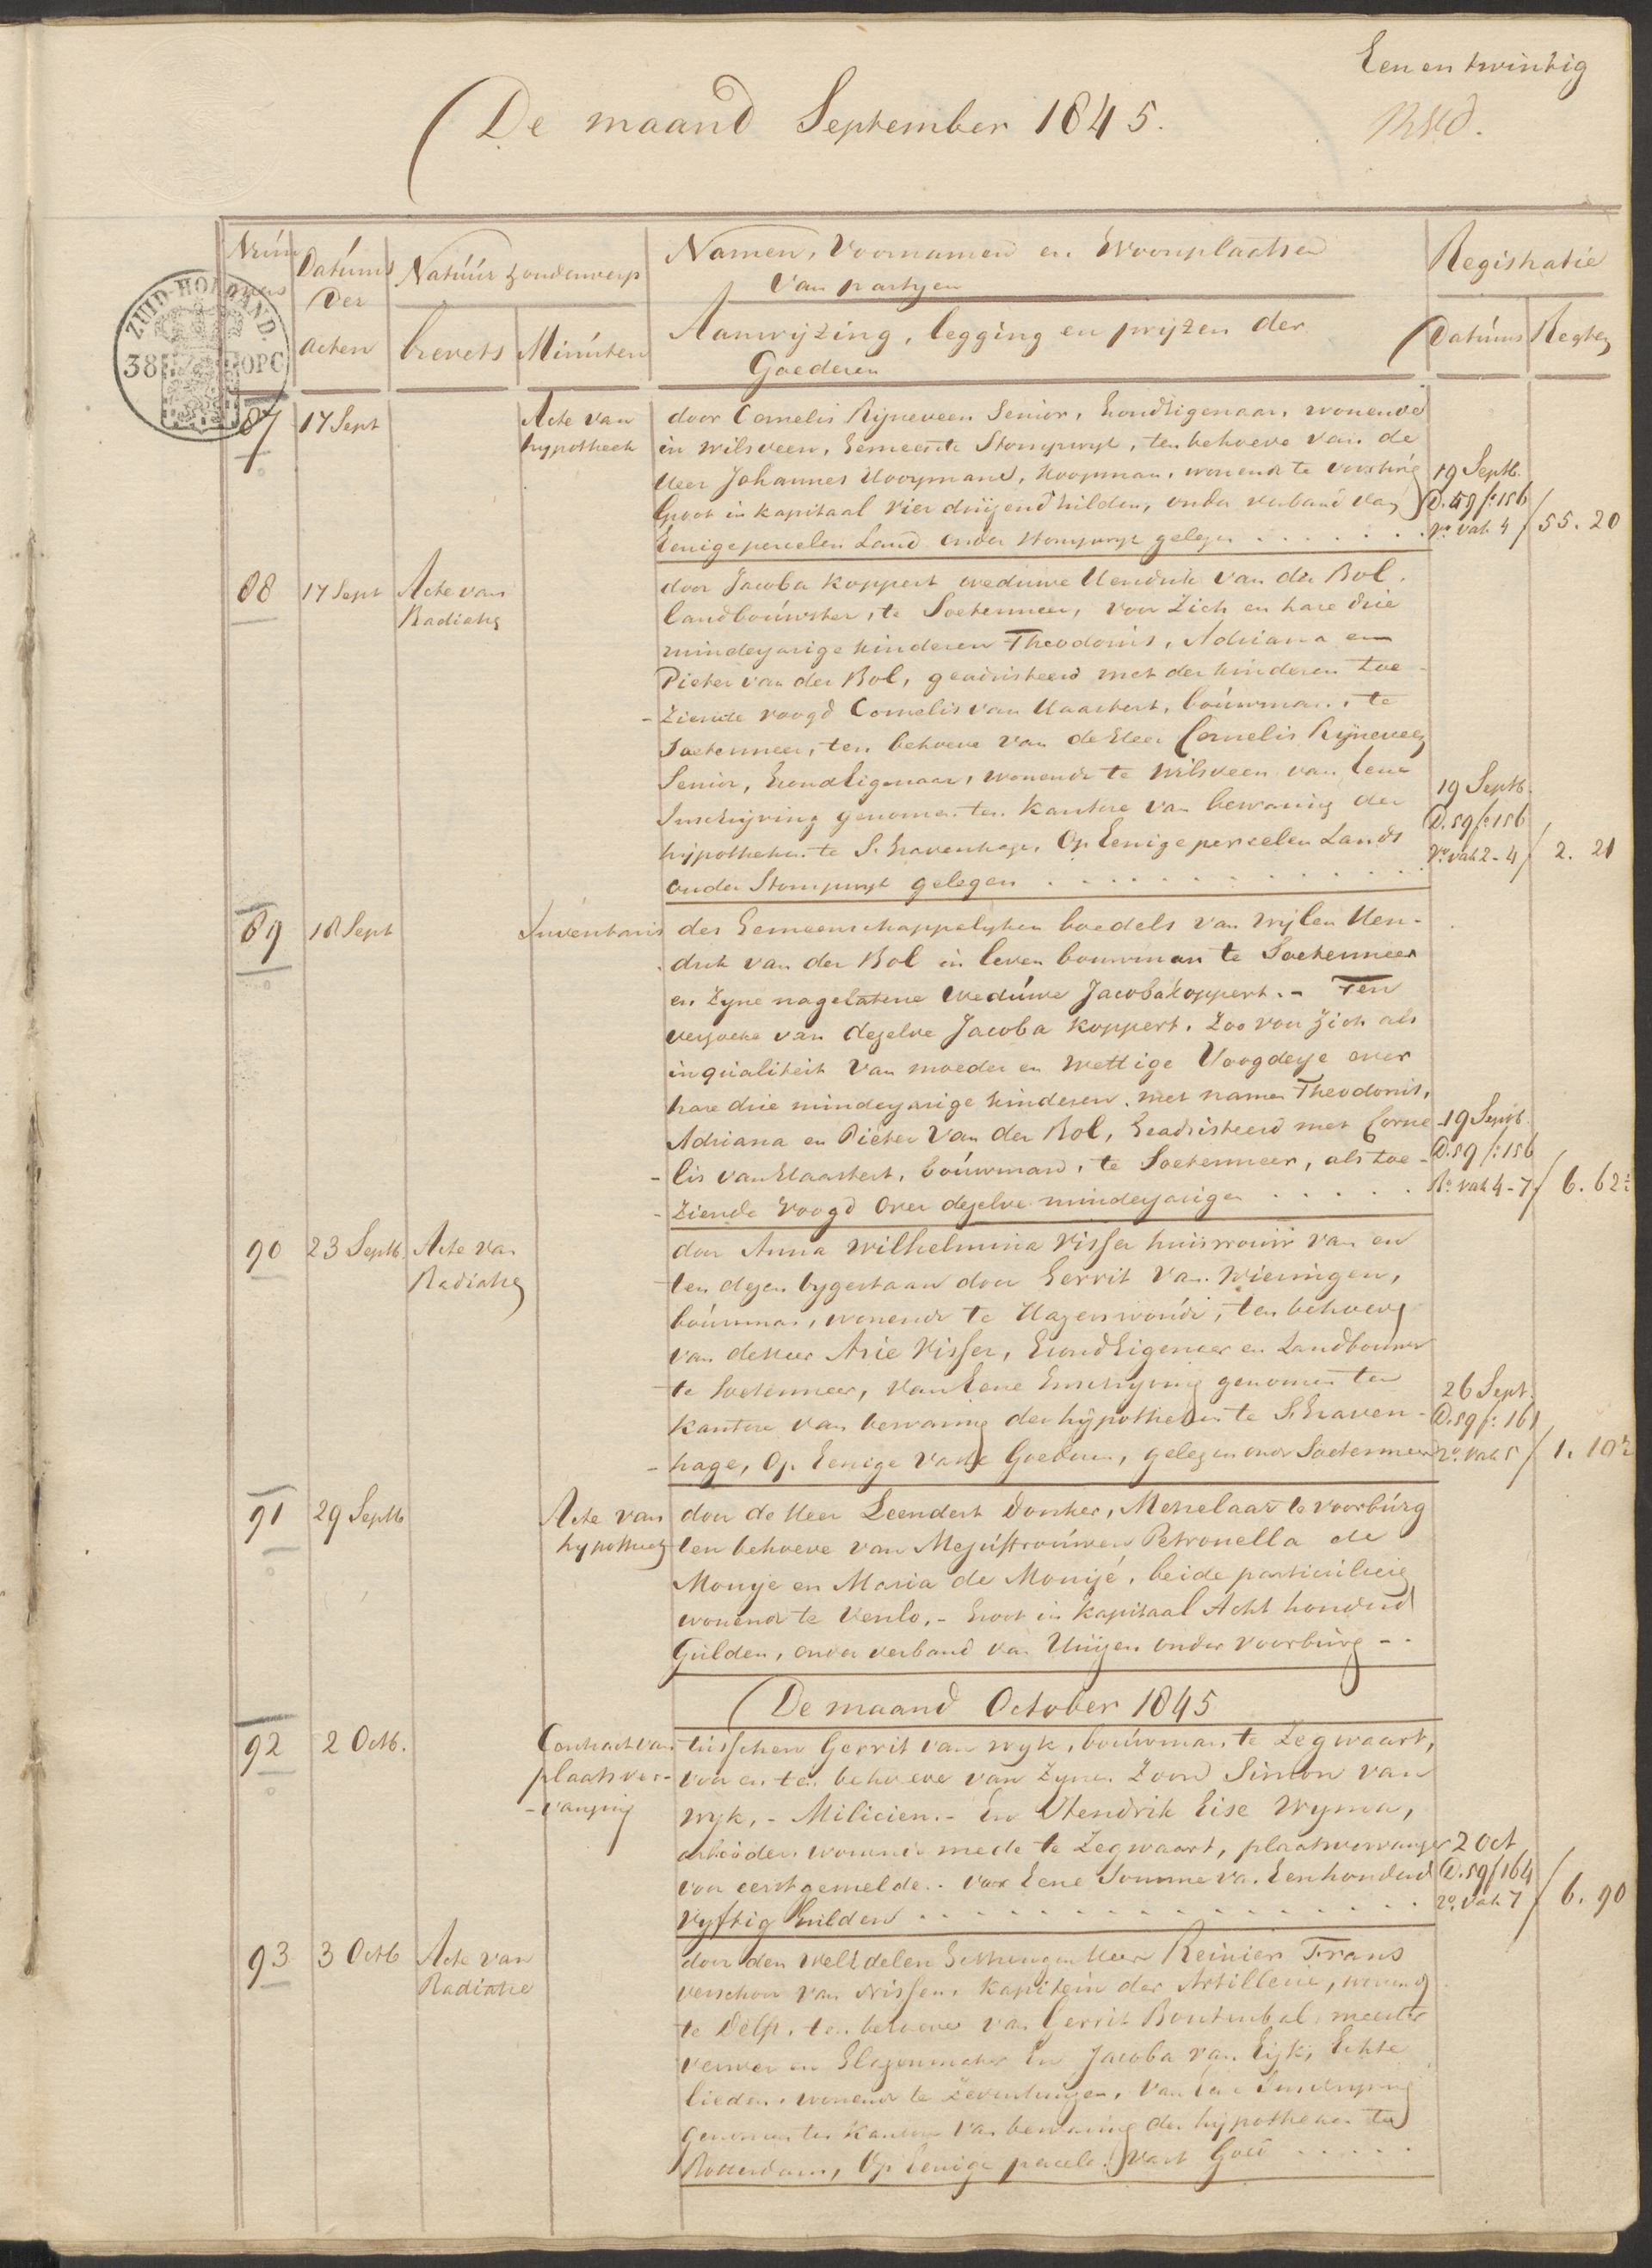 Een en twintig
De maand September 1845.
ZUID-HOLLAND.
38 OPC
Datums der acten
Natuur & onderwerp
brevets
Minuten
Namen, Voornamen en Woonplaatsen
van partyen
Aanwyzing, legging en pryzen der
Goederen
Registratie
Datums
Regten
87 17 Sept Acte van hypotheek
door Cornelis Rijneveen Senior, Grondeigenaar, wonende
in Wilsveen, Gemeente Stompwyk, ten behoeve van de
Heer Johannes Hooymans, Koopman, wonende te
Groot in kapitaal vier duizend Gulden, onder verband van
eenige perceelen Land onder Stompwyk gelegen
19 Septb.
D. 59 f: 156
vo vak 4
55. 20
88 17 Sept Acte van Radiatie
door Jacoba Koppert weduwe Hendrik van der Bol,
landbouwster, te Soetermeer, voor Zich en hare drie
minderjarige kinderen Theodorus, Adriana en
Pieter van der Bol, geadsisteerd met der kinderen toe-
-ziende voogd Cornelis van Haastert, bouwman, te
Soetermeer, ten behoeve van de Heer Cornelis Rijneveen
Senior, Grondeigenaar, wonende te Wilsveen van eene
Inschryving genomen ten kantore van bewaring der
hypotheken te S. Gravenhage, Op Eenige perceelen Lands
onder Stompwyk gelegen
19 Septb.
D. 59 f: 156
vo vak 2-4
2. 21
89 18 Sept Inventaris
des Gemeenschappelyken boedels van wylen Hen-
-drik van der Bol in leven bouwman te Soetermeer
en Zyne nagelatene Weduwe Jacoba Koppert. - Ten
verzoeke van dezelve Jacoba Koppert, Zoo voor Zich als
in qualiteit van moeder en wettige Voogdesse over
hare drie minderjarige kinderen, met namen Theodorus,
Adriana en Pieter van der Bol, Geadsisteerd met Corne-
-lis van Haastert, bouwman, te Soetermeer, als toe-
-ziende voogd over dezelve minderjarigen
19 Septb.
D. 59 f: 156
Ro vak 4-7
6. 62½
90 23 Septb. Acte van Radiatie
door Anna Wilhelmina Visser huisvrouw van en
ten dezen bygestaan door Gerrit van Wieringen,
bouwman, wonende te Hazerswoude, ten behoeve
van de Heer Arie Visser, Grondeigenaar en Landbouwer
te Soetermeer, van Eene Inschryving genomen ten
kantore van bewaring der hypotheken te S. Graven-
-hage, Op Eenige vaste Goederen, gelegen onder Soetermeer
26 Sept.
D. 59 f: 161
vo vak 5
1. 10½
91 29 Septb Acte van hypotheek
door de Heer Leendert Donker, Metselaar te Voorburg
ten behoeve van Mejuffrouwen Petronella de
Monyé en Maria de Monyé, beide particuliere
wonende te Venlo, - Groot in kapitaal Acht honderd
Gulden, onder verband van Huizen onder Voorburg
De maand October 1845
92 2 Octb. Contract van plaatsver-
-vanging
tusschen Gerrit van Wyk, bouwman, te Zegwaart,
voor en ten behoeve van Zynen Zoon Simon van
Wyk, - Milicien. - En Hendrik Eise Wyma,
arbeider, wonende mede te Zegwaart, plaatsvervanger
voor eerstgemelde. voor Eene Somme van Eenhonderd
vyftig Gulden
2 Oct
D. 59 f 164
vo vak 7
6. 90
93 3 Octb Acte van Radiatie
door den WelEdelen Gestrengen Heer Reinier Frans
Verschoor van Nissen, Kapitein der Artillerie, wonende
te Delft, ten behoeve van Gerrit Bontenbal, meester
verwer en Glazenmaker En Jacoba van Eijk, Echte
lieden, wonende te Zevenhuizen, van Eene Inschryving
genomen ten kantore van bewaring der hypotheken te
Rotterdam, Op Eenige perceelen Vast Goed